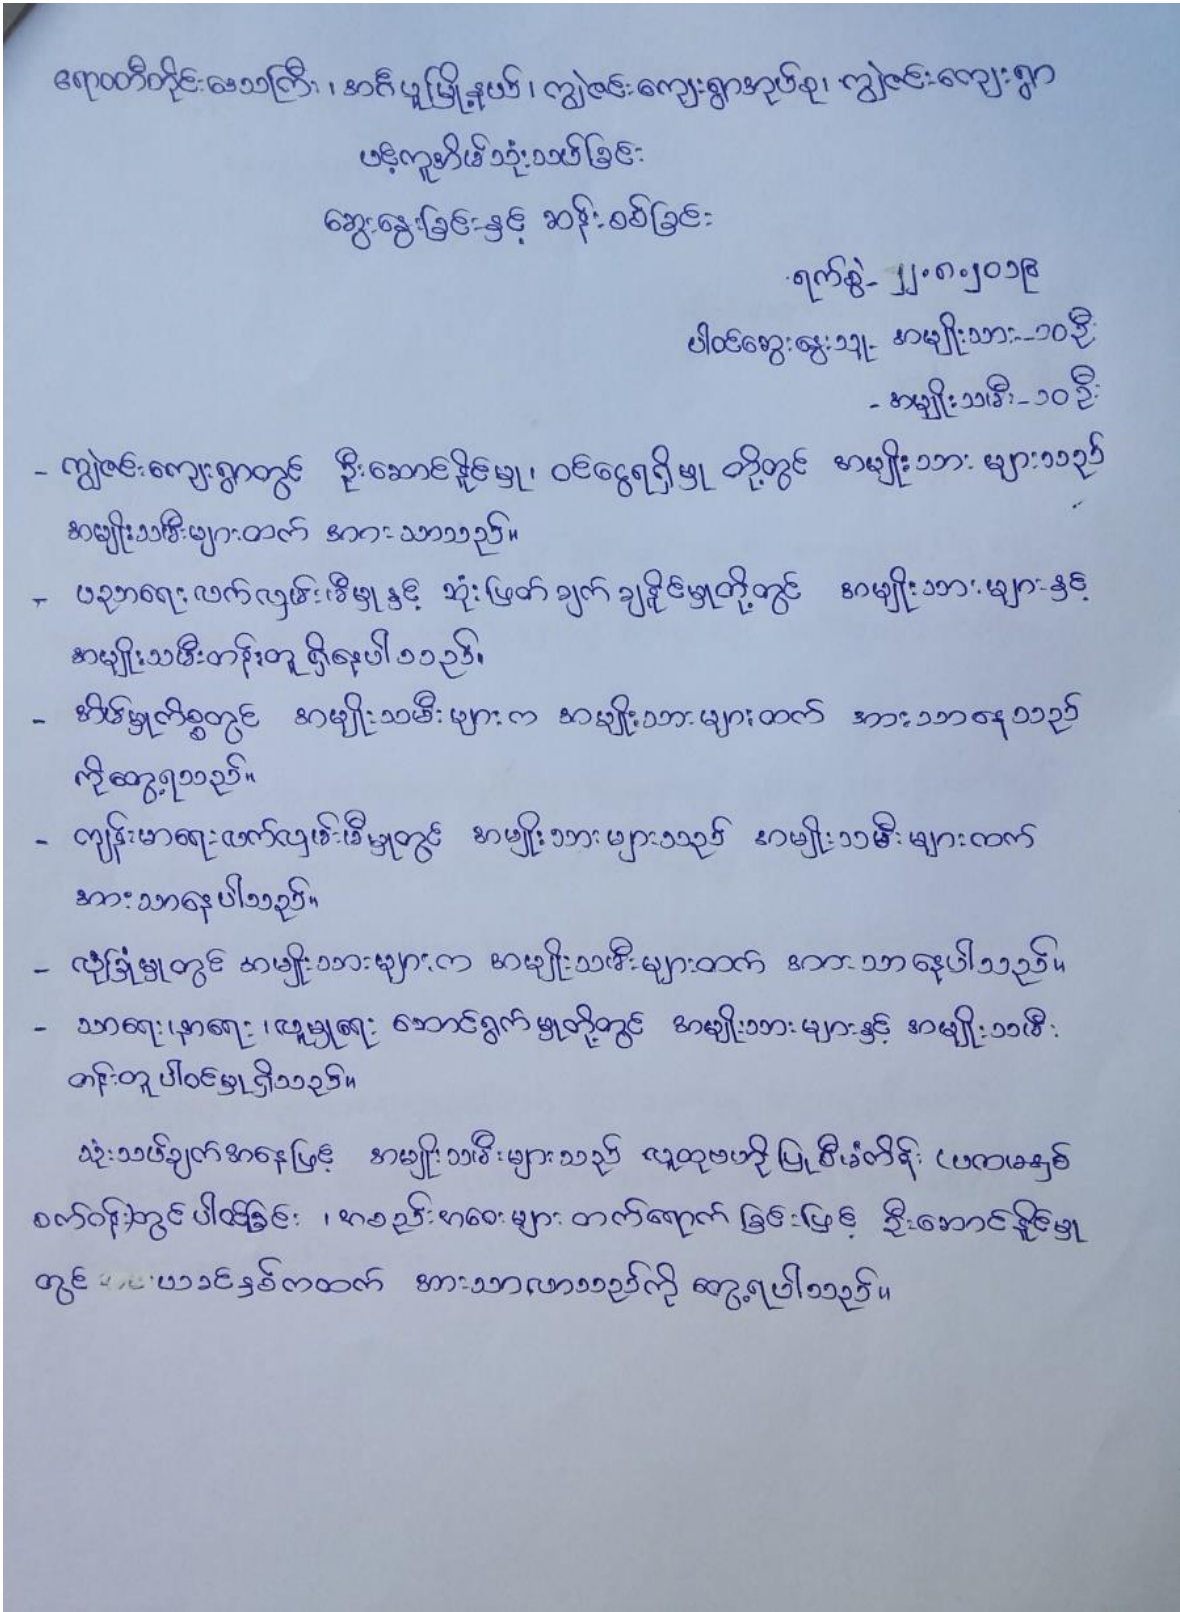 ဧရာဝတီတိုင်းဒေသကြီး၊ အင်္ဂပူမြို့နယ်၊ ကျွဲဇင်းကျေးရွာအုပ်စု၊ ကျွဲဇင်းကျေးရွာ
ပင့်ကူအိမ်သုံးသပ်ခြင်း
ဆွေးနွေးခြင်းနှင့် ဆန်းစစ်ခြင်း
ရက်စွဲ- ၂၂.၈.၂၀၁၉
ပါဝင်ဆွေးနွေးသူ- အမျိုးသား--၁၀ဦး
- အမျိုးသမီး-၁၀ဦး
- ကျွဲဇင်းကျေးရွာတွင် ဦးဆောင်နိုင်မှု၊ ဝင်ငွေရရှိမှု တို့တွင် အမျိုးသား များသည်
အမျိုးသမီးများထက် အားသာသည်။
- ပညာရေးလက်လှမ်းမီမှုနှင့် ဆုံးဖြတ်ချက်ချနိုင်မှုတို့တွင် အမျိုးသားများနှင့်
အမျိုးသမီးတန်းတူ ရှိနေပါသည်။
- အိမ်မှုကိစ္စတွင် အမျိုးသမီးများက အမျိုးသားများထက် အားသာနေသည်
ကိုတွေ့ရသည်။
- ကျန်းမာရေးလက်လှမ်းမီမှုတွင် အမျိုးသားများသည် အမျိုးသမီးများထက်
အားသာနေပါသည်။
- လုံခြုံမှုတွင် အမျိုးသားများက အမျိုးသမီးများထက် အားသာနေပါသည်။
- သာရေး၊နာရေး၊လူမှုရေး ဆောင်ရွက်မှုတို့တွင် အမျိုးသားများနှင့် အမျိုးသမီး
တန်းတူပါဝင်မှုရှိသည်။
သုံးသပ်ချက်အနေဖြင့် အမျိုးသမီးများသည် လူထုဗဟိုပြုစီမံကိန်း (ပထမနှစ်
စက်ဝန်း)တွင်ပါဝင်ခြင်း ၊အစည်းအဝေးများ တက်ရောက်ခြင်းဖြင့် ဦးဆောင်နိုင်မှု
တွင် ယခင်နှစ်ကထက် အားသာလာသည်ကို တွေ့ရပါသည်။